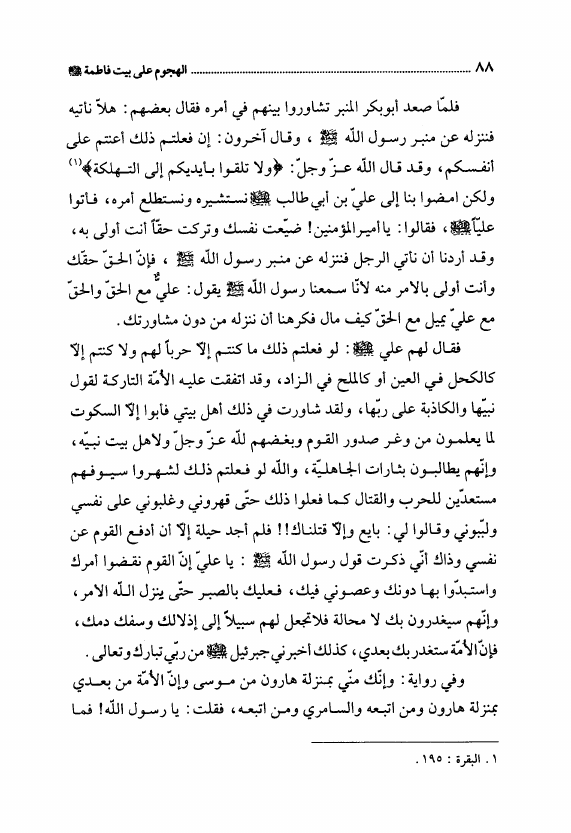 ٨٨ ........ الهجوم على بيت فاطمة ﷺ
فلمّا صعد أبوبكر المنبر تشاوروا بينهم في أمره فقال بعضهم: هلاّ نأتيه
فننزله عن منبر رسول الله ﷺ ، وقال آخرون: إن فعلتم ذلك أعنتم على
أنفسكم، وقد قال الله عزّ وجلّ: ﴿ولا تلقوا بأيديكم إلى التهلكة﴾(١)
ولكن امضوا بنا إلى عليّ بن أبي طالب ﷺ نستشيره ونستطلع أمره، فأتوا
عليّاًﷺ، فقالوا: يا أميرالمؤمنين! ضيّعت نفسك وتركت حقّاً أنت أولى به،
وقد أردنا أن نأتي الرجل فننزله عن منبر رسول الله ﷺ ، فإنّ الحقّ حقّك
وأنت أولى بالامر منه لانّا سمعنا رسول الله ﷺ يقول: عليٌّ مع الحقّ والحقّ
مع عليّ يميل مع الحقّ كيف مال فكرهنا أن ننزله من دون مشاورتك.
فقال لهم علي ﷺ : لو فعلتم ذلك ما كنتم إلاّ حرباً لهم ولا كنتم إلاّ
كالكحل في العين أو كالملح في الزاد، وقد اتفقت عليه الأمّة التاركة لقول
نبيّها والكاذبة على ربّها، ولقد شاورت في ذلك أهل بيتي فأبوا إلاّ السكوت
لما يعلمون من وغر صدور القوم وبغضهم لله عزّ وجلّ ولاهل بيت نبيّه،
وإنّهم يطالبون بثارات الجاهليّة، والله لو فعلتم ذلك لشهروا سيوفهم
مستعدّين للحرب والقتال كما فعلوا ذلك حتّى قهروني وغلبوني على نفسي
ولبّبوني وقالوا لي: بايع وإلاّ قتلناك!! فلم أجد حيلة إلاّ أن أدفع القوم عن
نفسي وذاك أنّي ذكرت قول رسول الله ﷺ : يا عليّ إنّ القوم نقضوا أمرك
واستبدّوا بها دونك وعصوني فيك، فعليك بالصبر حتّى ينزل الله الامر،
وإنّهم سيغدرون بك لا محالة فلاتجعل لهم سبيلاً إلى إذلالك وسفك دمك،
فإنّ الأمّة ستغدر بك بعدي، كذلك أخبرني جبرئيل ﷺ من ربّي تبارك وتعالى.
وفي رواية: وإنّك منّي بمنزلة هارون من موسى وإنّ الأمّة من بعدي
بمنزلة هارون ومن اتبعه والسامري ومن اتبعه، فقلت: يا رسول الله! فما
١. البقرة : ١٩٥.